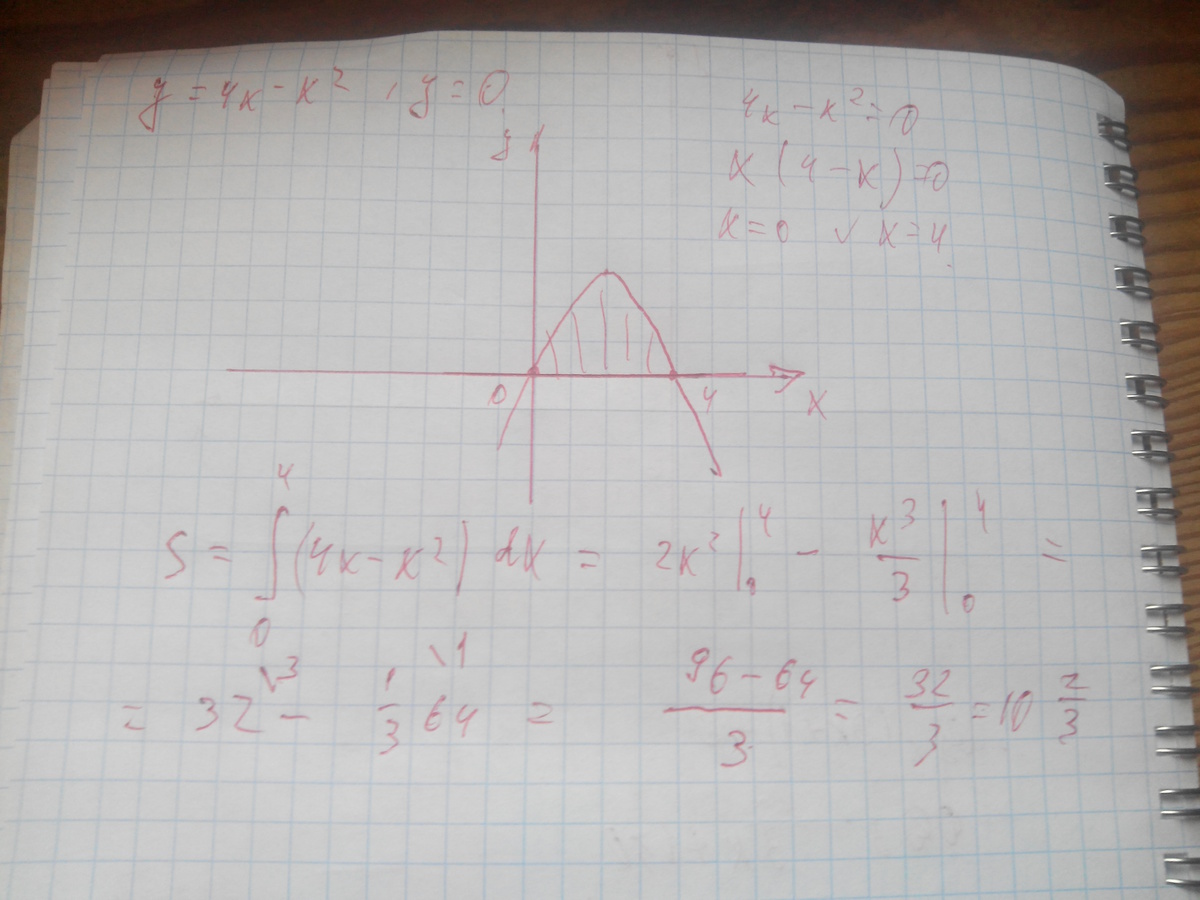 y = 4x - x², y = 0
4x - x² = 0
x (4 - x) = 0
x = 0 ∨ x = 4
y
0 4 x
S = ∫₀⁴ (4x - x²) dx = 2x² |₀⁴ - x³/3 |₀⁴ =
= 32\3 - 1/3 64\1 = (96 - 64)/3 = 32/3 = 10 2/3